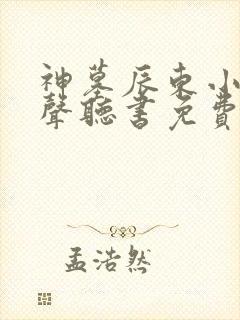 神墓辰东小
聲聽書免費
孟浩然